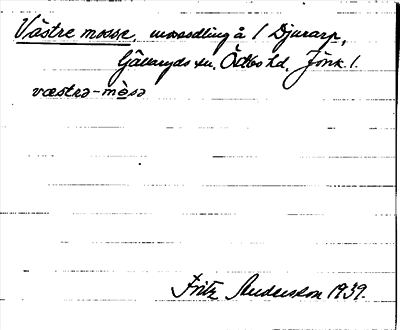 Västre mosse, mossodling å 1 Djurarp,
Gällaryds sn. Östbo hd. Jönk. l.
væstrə-mòsə
Fritz Andersson 1939.